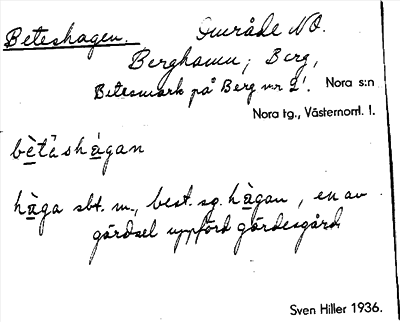 Beteshagen. Område NO.
Berghamn, Berg,
Betesmark på Berg nr 2¹. Nora s:n
Nora tg., Västernorrl. l.
bètàshàgan
hàga sbt. m., best. sg. hàgan, en av
gärdsel uppförd gärdesgård
Sven Hiller 1936.